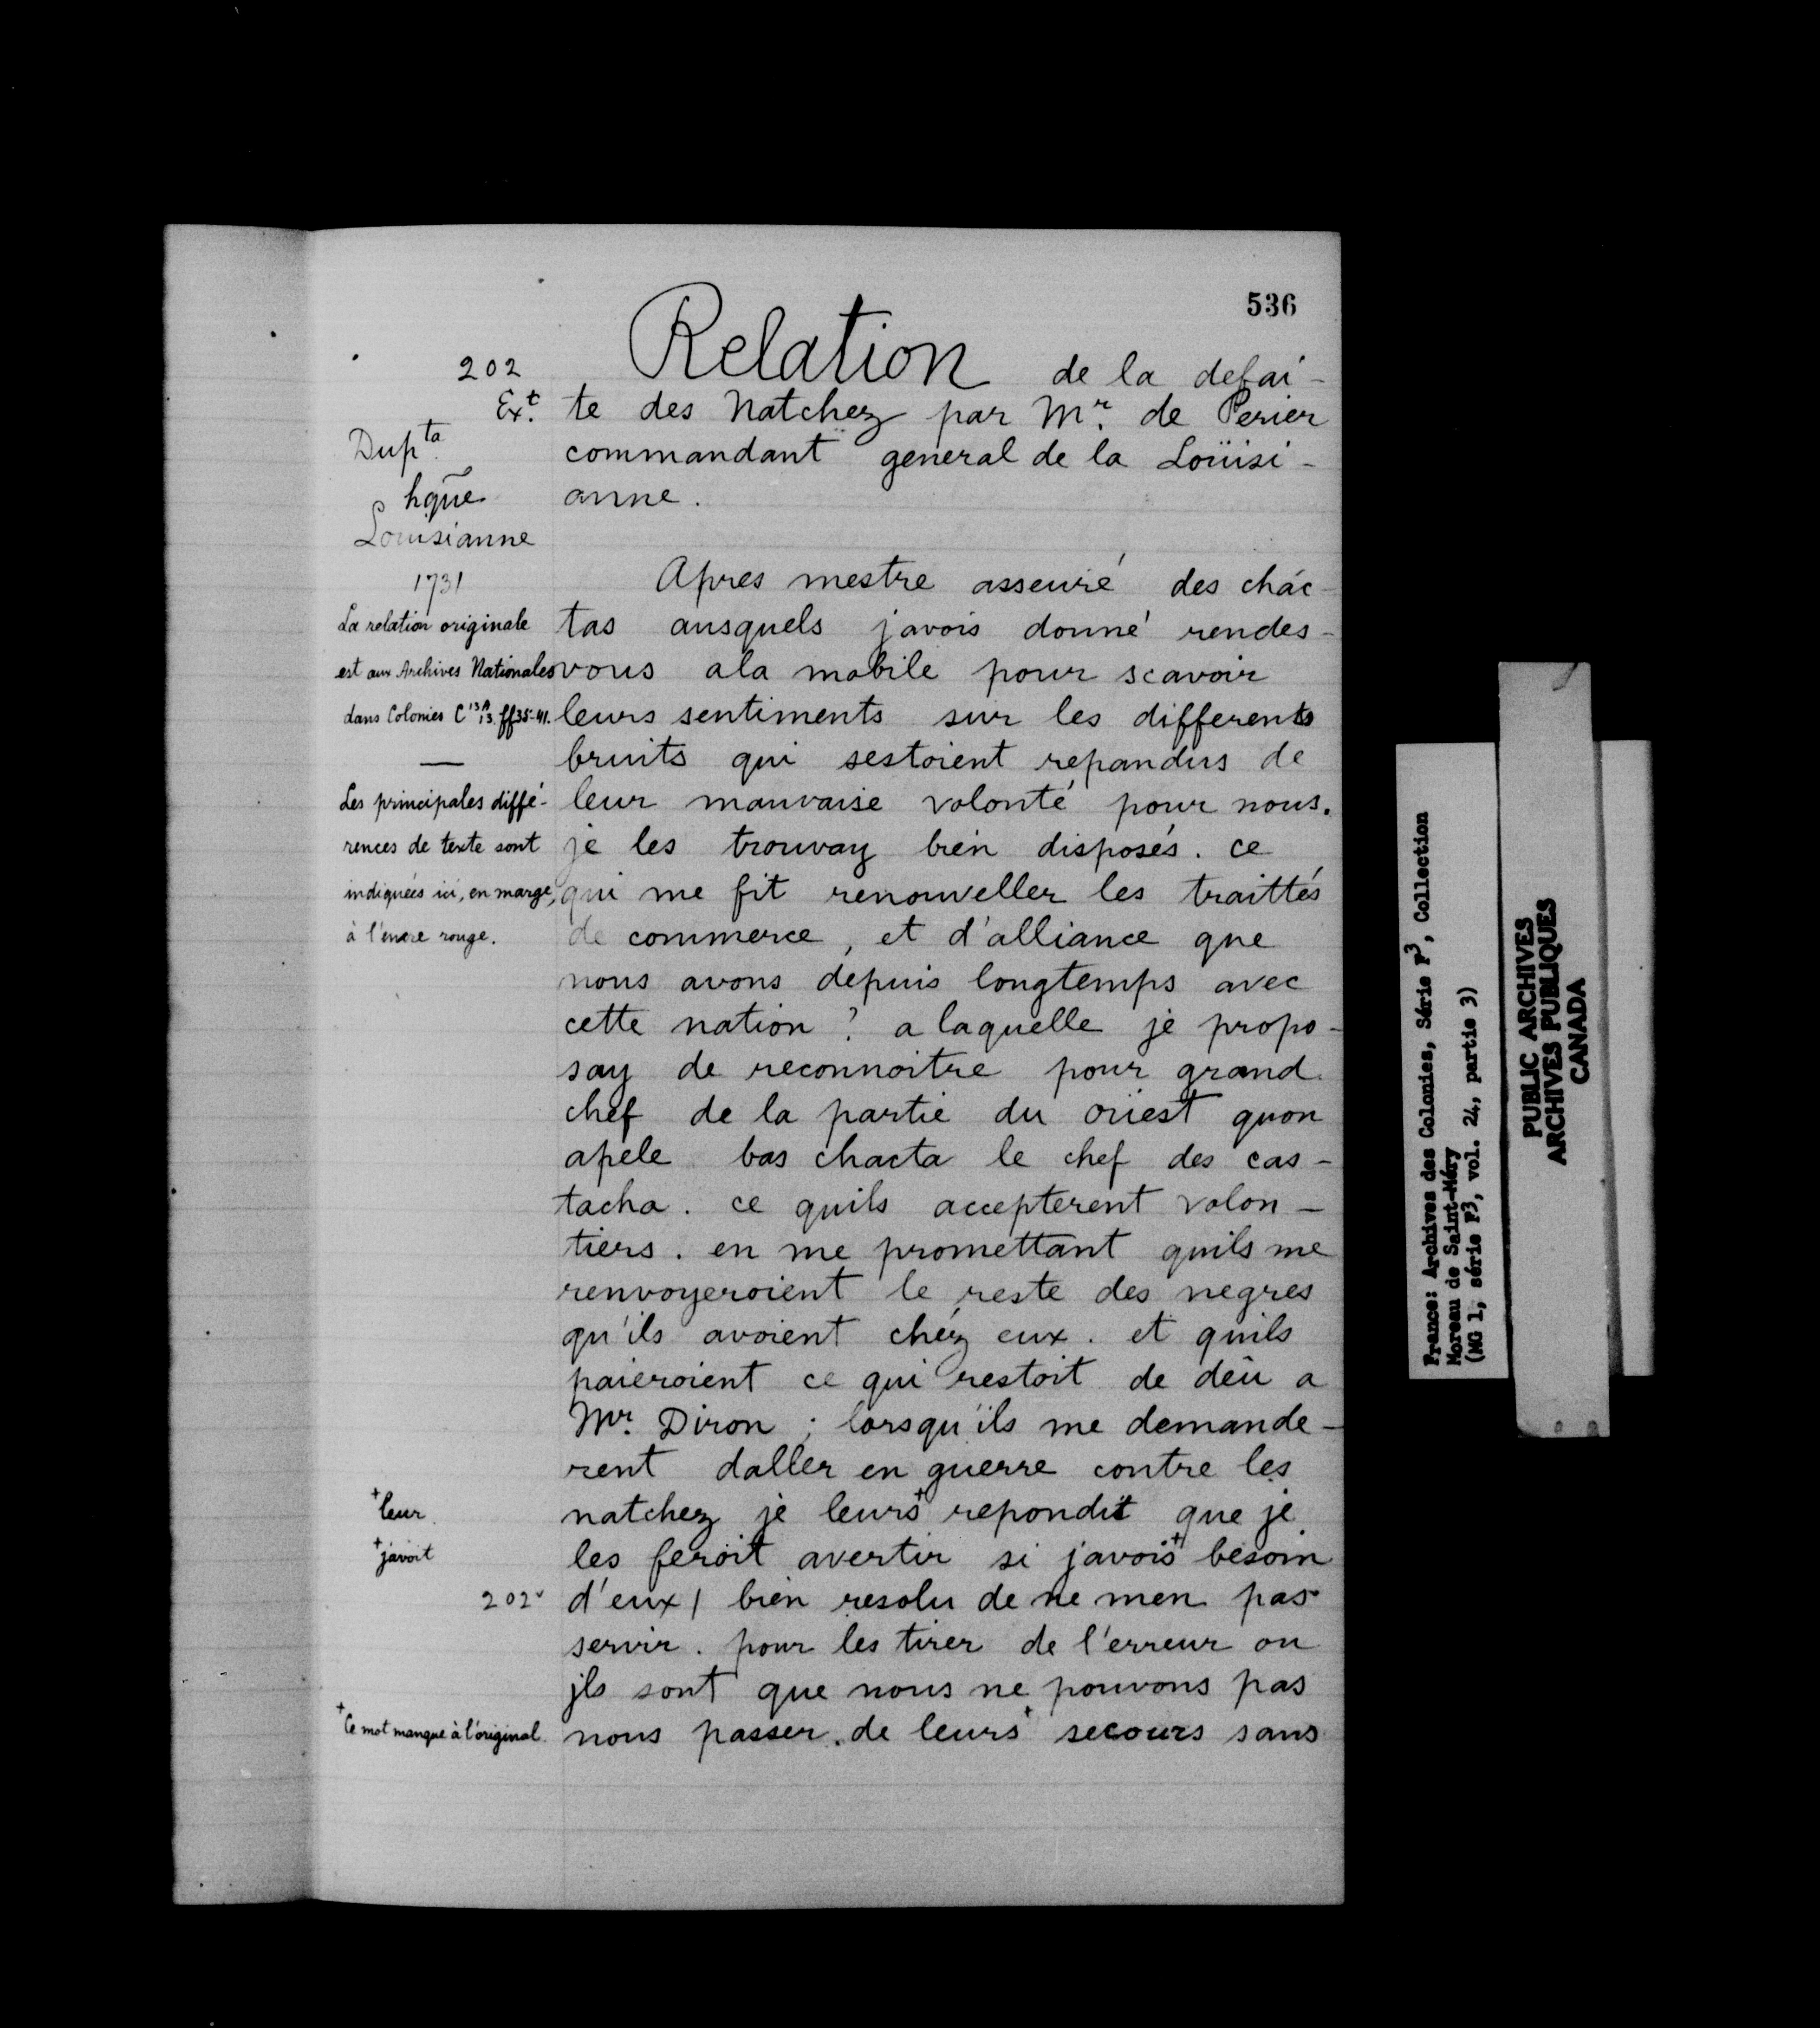 536
Relation de la defai-
te des Natchez par Mr. de Perier
commandant general de la Loüisi-
anne.
202
Ext.
Dupta.
hqũe
Louisianne
1731
La relation originale
est aux Archives Nationales
dans Colonies C13A 13. ff 35-41.
—
Les principales diffé-
rences de texte sont
indiquées ici, en marge,
à l'encre rouge.
Apres mestre asseuré des chác-
tas ausquels javois donné rendes-
vous ala mobile pour scavoir
leurs sentiments sur les differents
bruits qui sestoient repandus de
leur mauvaise volonté pour nous.
je les trouvay bien disposés. ce
qui me fit renouveller les traittés
de commerce, et d'alliance que
nous avons depuis longtemps avec
cette nation? a laquelle je propo-
say de reconnoitre pour grand
chef de la partie du oüest quon
apele bas chacta le chef des cas-
tacha. ce quils accepterent volon-
tiers. en me promettant quils me
renvoyeroient le reste des negres
qu'ils avoient chéz eux. et quils
paieroient ce qui restoit de dêu a
Mr. Diron; lorsqu'ils me demande-
rent daller en guerre contre les
natchez je leurs+ repondit que je
les feroit avertir si javois+ besoin
d'eux/ bien resolu de ne men pas
servir. pour les tirer de l'erreur ou
jls sont que nous ne pouvons pas
nous passer. de leurs+ secours sans
+leur.
+javoit
202v
+Ce mot manque à l'original.
France: Archives des Colonies, Série F3, Collection
Moreau de Saint-Méry
(MG 1, série F3, vol. 24, partie 3)
PUBLIC ARCHIVES
ARCHIVES PUBLIQUES
CANADA